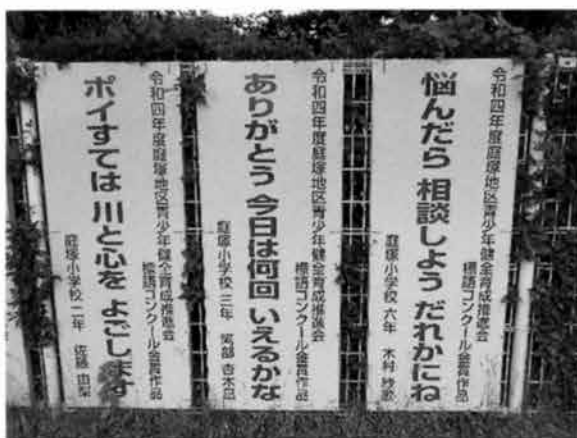 令和四年度庭塚地区青少年健全育成推進会
標語コンクール金賞作品
悩んだら 相談しよう だれかにね
庭塚小学校 六年 木村
令和四年度庭塚地区青少年健全育成推進会
標語コンクール金賞作品
ありがとう 今日は何回 いえるかな
庭塚小学校 三年
令和四年度庭塚地区青少年健全育成推進会
標語コンクール金賞作品
ポイすては 川と心を よごします
庭塚小学校 二年 佐藤 由梨